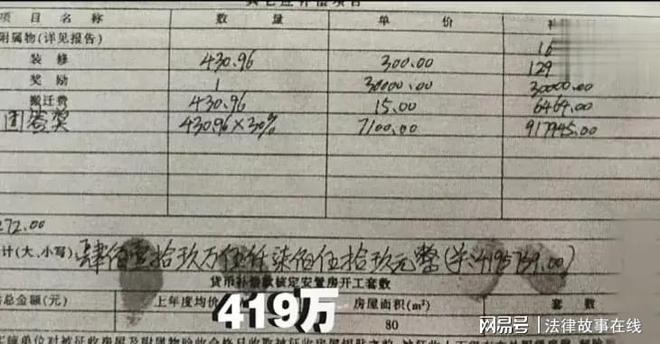 项目名称 数量 单价
附属物(详见报告) 16
装修 430.96 300.00 129
奖励 1 30000.00 30000.00
搬迁费 430.96 15.00 6464.00
团签奖 430.96×30% 7100.00 917945.00
272.00
计(大、小写) 肆佰壹拾玖万伍仟柒佰伍拾玖元整(¥:4195759.00)
货币补偿款核定安置房开工套数
总金额(元) 上年度均价 房屋面积(m²) 套数
419万
80
网易号 | 法律故事在线